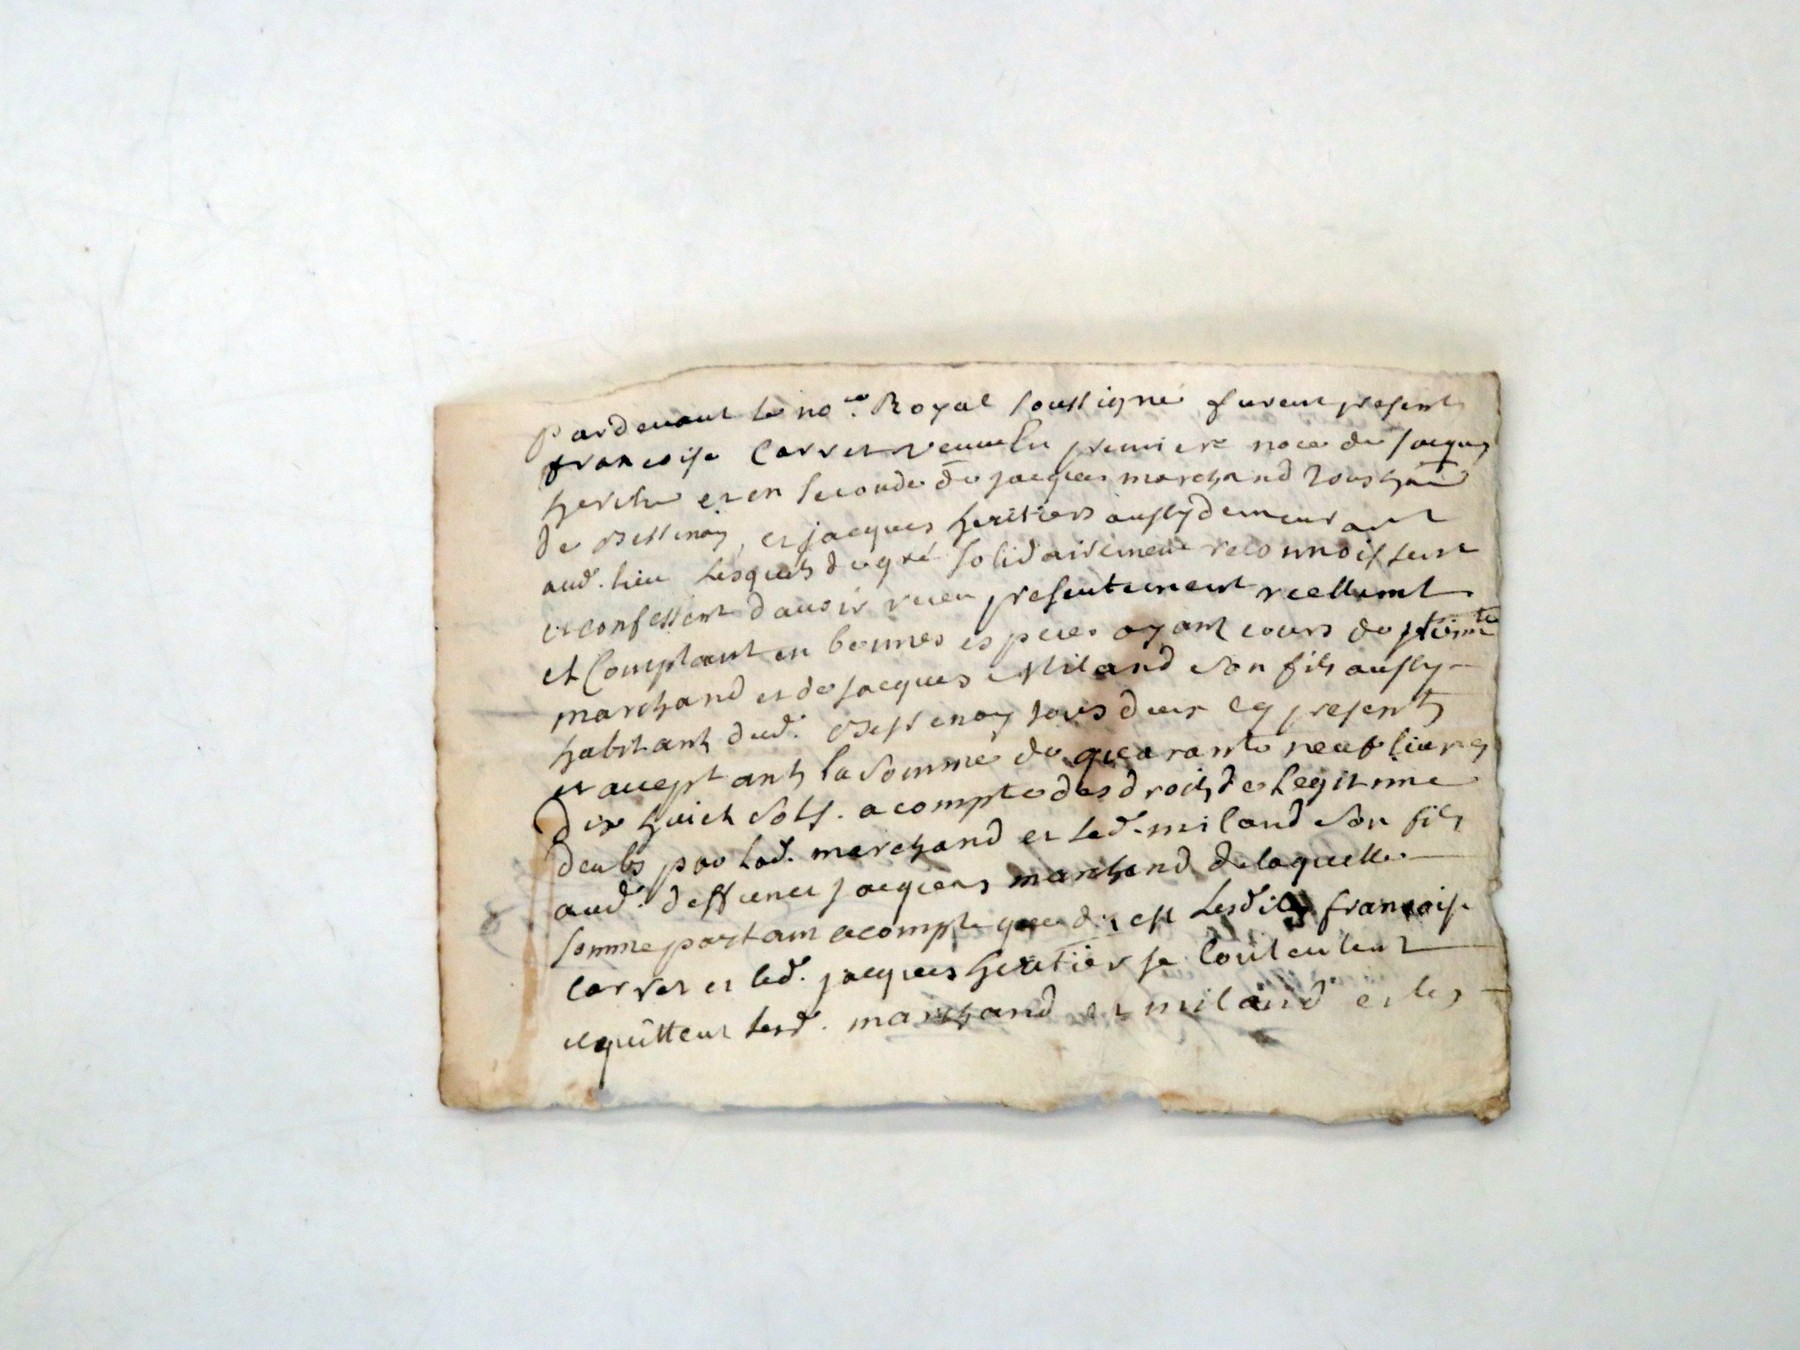 Pardevant le no.re Royal soussigné furent presents
francoise Carret veuve En premiere noce de Jacques
heritier et en seconde de jacques marchand
de Bessenay, et jacques heritiers aussy demeurant
aud. lieu Lesquels de gré solidairement reconnoissent
et confessent d'avoir receu presentement reellemt
et Comptant en bonnes especes ayant cours de
marchand et de jacques Miland son fils aussy
habitants dud. Bessenay tous deux cy presents
et acceptants la somme de quarante neuf livres
dix huict sols. a compte des droits de Legitime
deubs par lad. marchand et led. miland son fils
aud. deffunct jacques marchand de laquelle
somme partant a compte que dit est Lesdits francoise
Carret et led. jacques heritier se contentent
et quittent lesd. marchand et miland et les